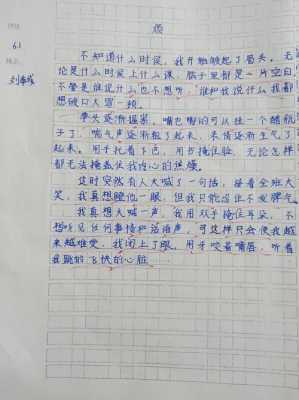 班级
6.1
姓名
烦
不知道什么时候,我开始皱起了眉头。无
论是什么时候上什么课,脑子里都是一片空白,
不管是谁说什么也不想听,谁和我说什么我都
想破口大骂一顿。
拳头逐渐握紧,嘴巴嘟的可以挂一个醋瓶
子了,喘气声逐渐粗了起来,表情逐渐生气了
起来。用手托着下巴,用书掩住脸,无论怎样
都无法掩盖住我内心的焦燥。
这时突然有人大喊了一句话,接着全班大
笑,我真想瞪他一眼,但我只能忍住不发脾气。
我真想大喊一声,我用双手捂住耳朵,不
想听见任何事情和说话声,可这样只会使我越
来越难受,我闭上了眼。用牙咬着嘴唇,听着
我跳的飞快的心脏。